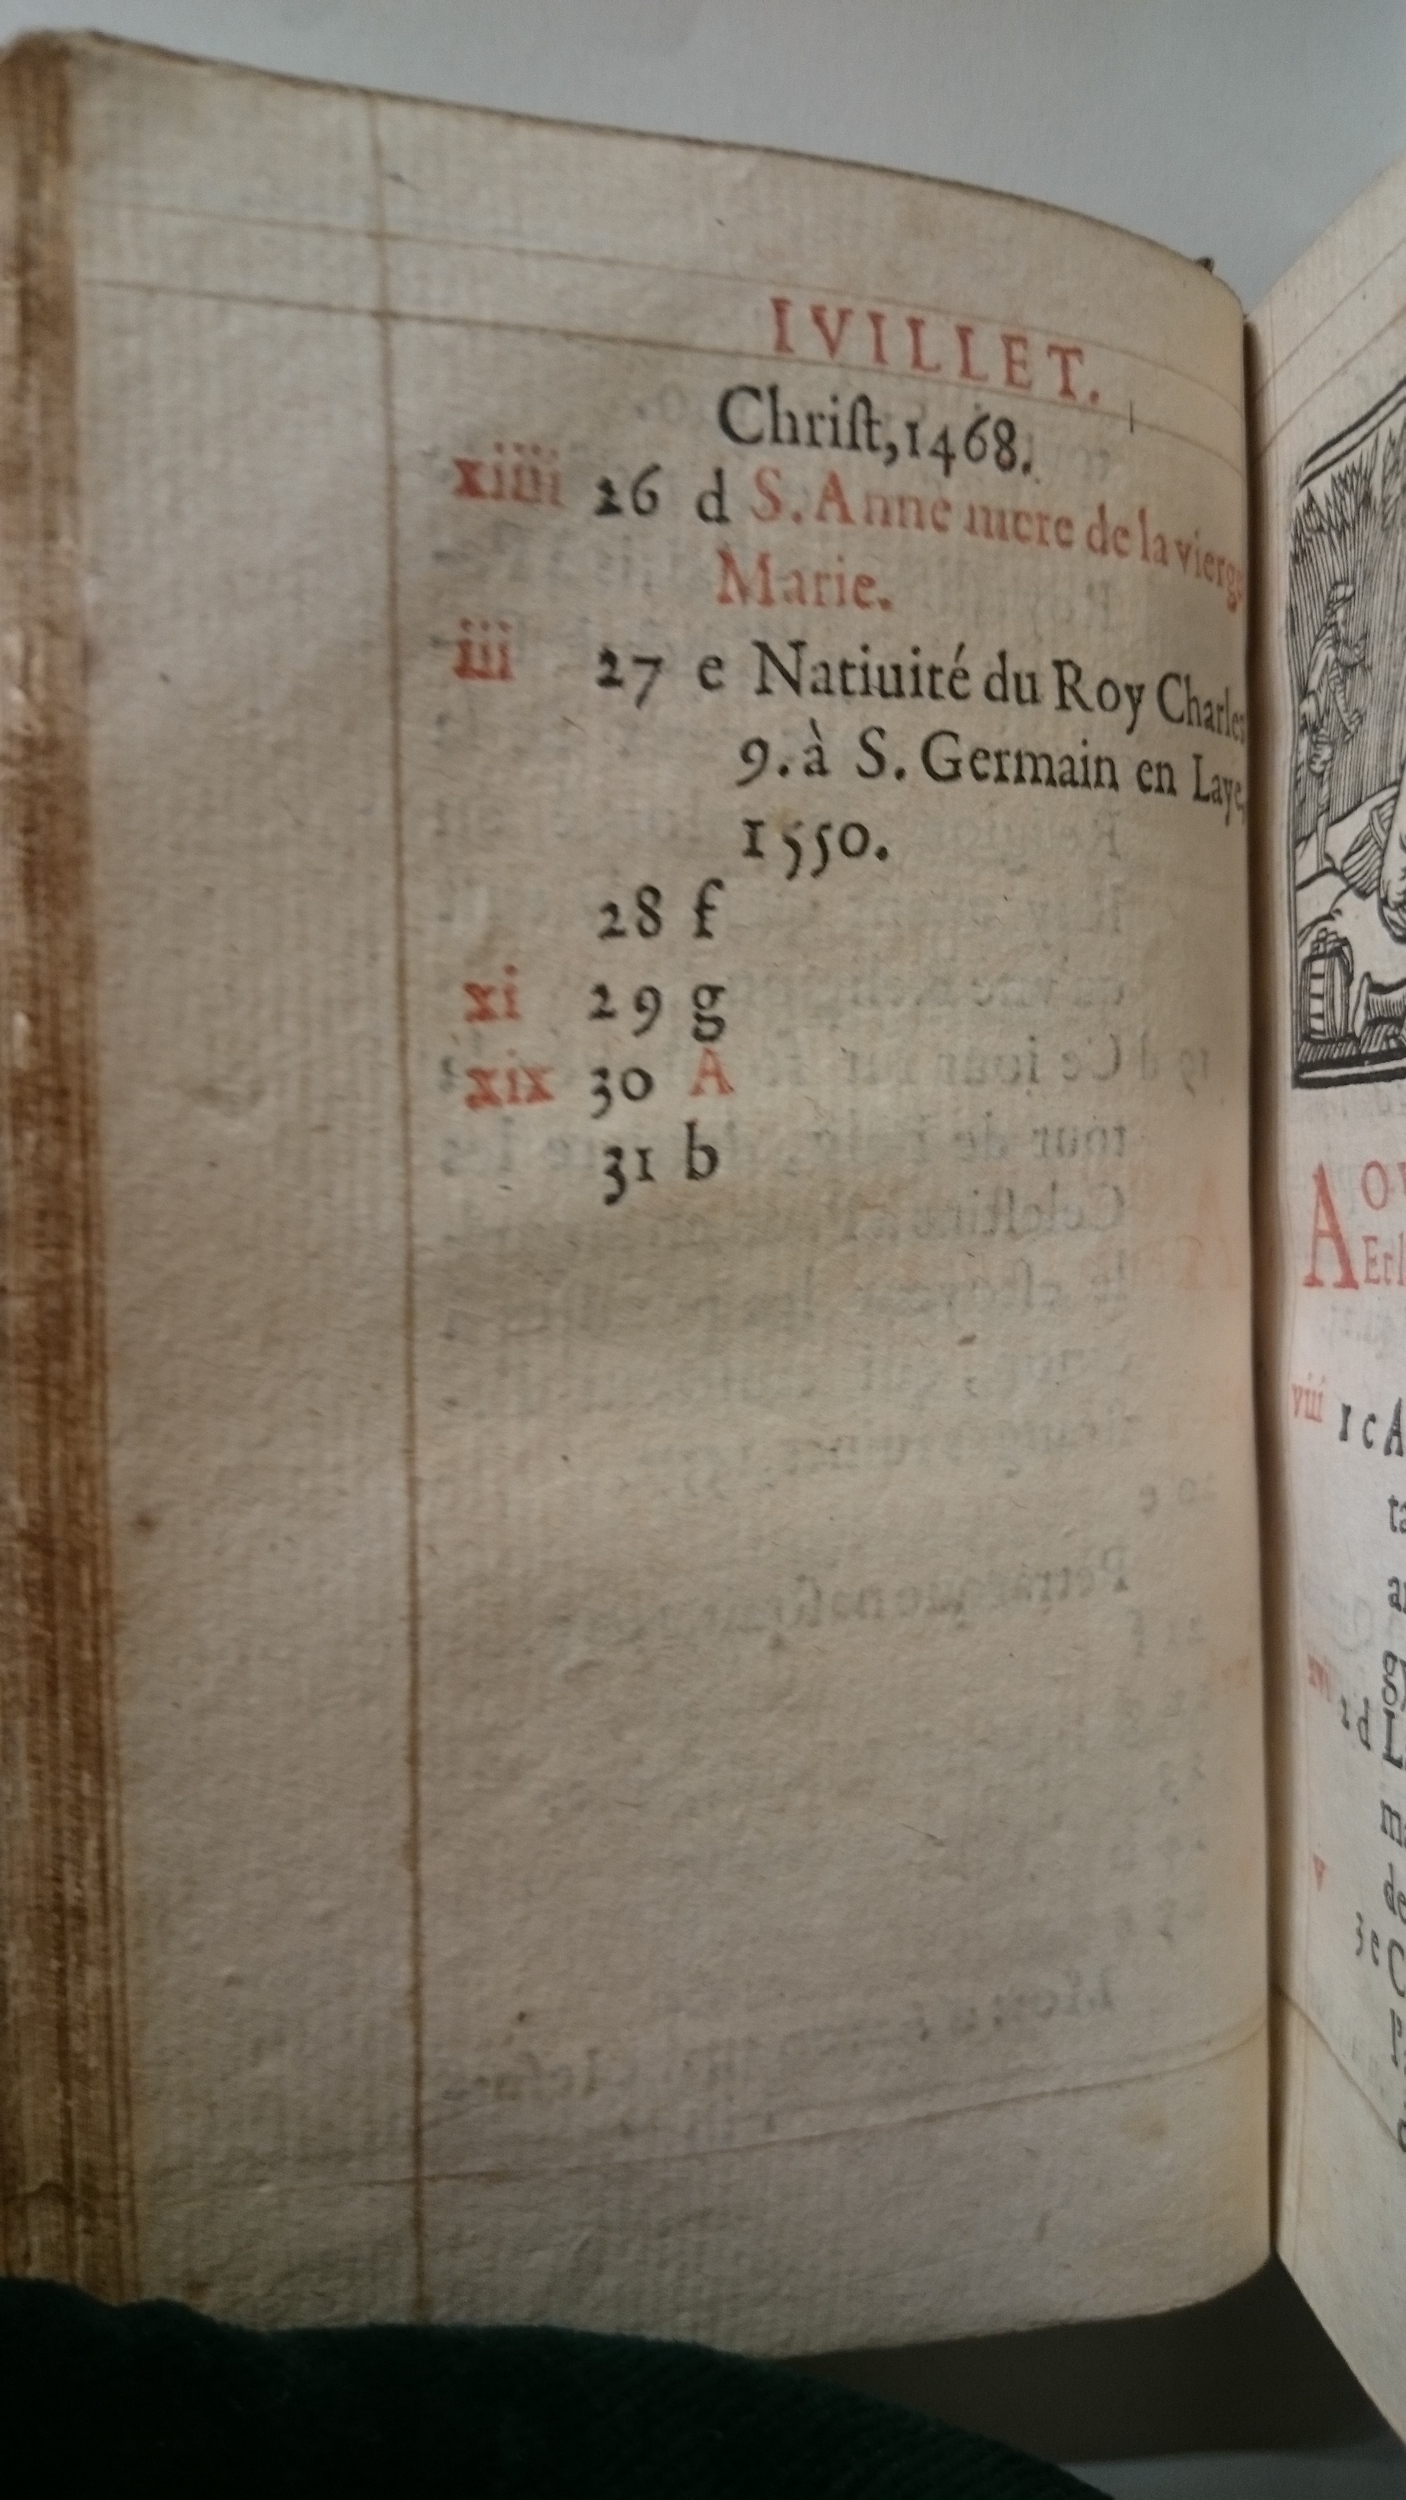 IVILLET.
Chriſt, 1468.
xiiii 26 d S. Anne mere de la vierge
Marie.
iii 27 e Natiuité du Roy Charles
9. à S. Germain en Laye,
1550.
28 f
xi 29 g
xix 30 A
31 b
A
viii 1 c A
xvi
2 d L
v
3 e C